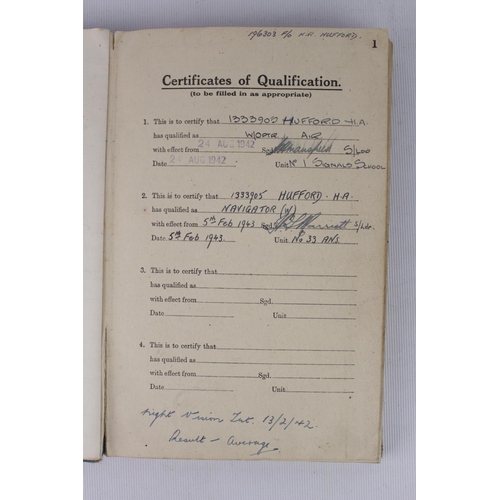 196303 F/O H.A. HUFFORD.
1
Certificates of Qualification.
(to be filled in as appropriate)
1. This is to certify that 1333905 HUFFORD H.A.
has qualified as W/OPTR AIR
with effect from 24 AUG 1942 Sgd. S/Ldr
Date 24 AUG 1942 Unit No 1 SIGNALS SCHOOL
2. This is to certify that 1333905 HUFFORD. H.A.
has qualified as NAVIGATOR (W)
with effect from 5th FEB 1943 Sgd. S/Ldr.
Date 5th FEB 1943. Unit No 33 ANS.
3. This is to certify that
has qualified as
with effect from Sgd.
Date Unit
4. This is to certify that
has qualified as
with effect from Sgd.
Date Unit
Night Vision Test 13/2/42
Result - Average